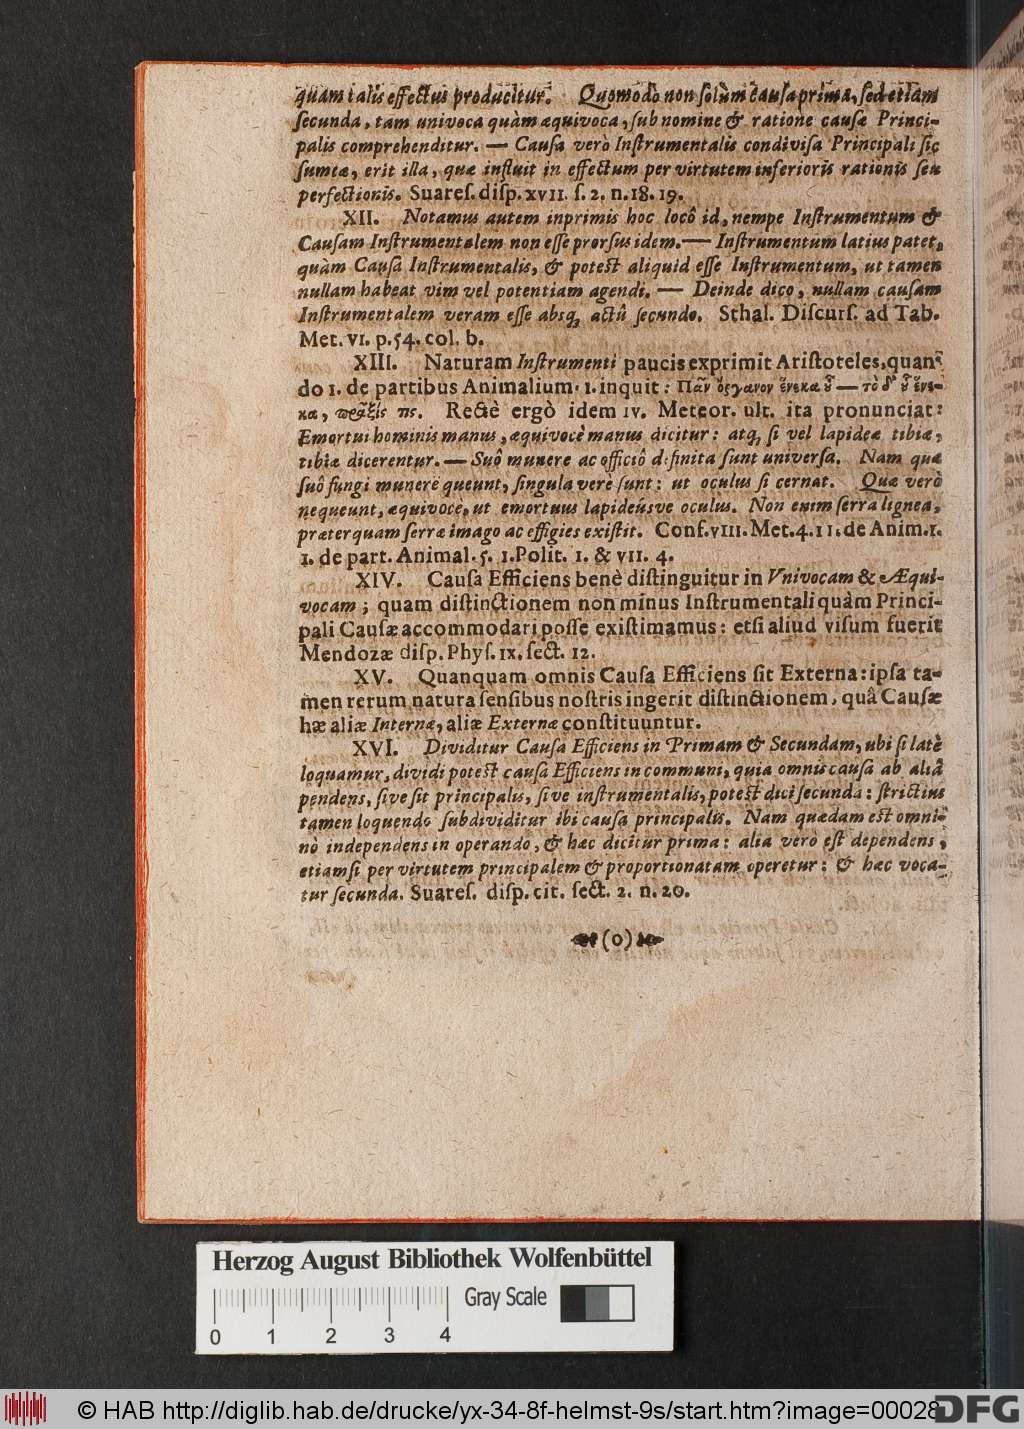 quam talis effectus producitur. Quomodo non ſolùm cauſa prima, ſed etiam
ſecunda, tam univoca quàm æquivoca, ſub nomine & ratione cauſæ Princi-
palis comprehenditur. — Cauſa verò Inſtrumentalis condiviſa Principali ſic
ſumtæ, erit illa, quæ influit in effectum per virtutem inferioris rationis ſeu
perfectionis. Suareſ. diſp. xvii. ſ. 2. n. 18. 19.
XII. Notamus autem inprimis hoc locô id, nempe Inſtrumentum &
Cauſam Inſtrumentalem non eſſe prorſus idem. — Inſtrumentum latius patet,
quàm Cauſa Inſtrumentalis, & poteſt aliquid eſſe Inſtrumentum, ut tamen
nullam habeat vim vel potentiam agendi. — Deinde dico, nullam cauſam
Inſtrumentalem veram eſſe absq; actû ſecundo. Sthal. Diſcurſ. ad Tab.
Met. vi. p. 54. col. b.
XIII. Naturam Inſtrumenti paucis exprimit Ariſtoteles, quan-
do 1. de partibus Animalium. 1. inquit: Πᾶν ὄργανον ἕνεκα ȣ̃ — τὸ δ' ȣ̃ ἕνε-
κα, πρᾶξίς τις. Rectè ergò idem iv. Meteor. ult. ita pronunciat:
Emortui hominis manus, æquivocè manus dicitur: atq; ſi vel lapideæ tibiæ,
tibiæ dicerentur. — Suô munere ac officiô definita ſunt univerſa. Nam quæ
ſuô fungi munere queunt, ſingula verè ſunt: ut oculus ſi cernat. Quæ verò
nequeunt, æquivoce, ut emortuus lapideúsve oculus. Non enim ſerra lignea,
præterquam ſerræ imago ac effigies exiſtit. Conf. viii. Met. 4. 11. de Anim. 1.
1. de part. Animal. 5. 1. Polit. 1. & vii. 4.
XIV. Cauſa Efficiens benè diſtinguitur in Vnivocam & Æqui-
vocam; quam diſtinctionem non minus Inſtrumentali quàm Princi-
pali Cauſæ accommodari poſſe exiſtimamus: etſi aliud viſum fuerit
Mendozæ diſp. Phyſ. ix. ſect. 12.
XV. Quanquam omnis Cauſa Efficiens ſit Externa: ipſa ta-
men rerum natura ſenſibus noſtris ingerit diſtinctionem, quâ Cauſæ
hæ aliæ Internæ, aliæ Externæ conſtituuntur.
XVI. Dividitur Cauſa Efficiens in Primam & Secundam, ubi ſi latè
loquamur, dividi poteſt cauſa Efficiens in communi, quia omnis cauſa ab aliâ
pendens, ſive ſit principalis, ſive inſtrumentalis, poteſt dici ſecunda: ſtrictius
tamen loquendo ſubdividitur ibi cauſa principalis. Nam quædam eſt omni-
nò independens in operando, & hæc dicitur prima: alia verò eſt dependens,
etiamſi per virtutem principalem & proportionatam operetur: & hæc voca-
tur ſecunda. Suareſ. diſp. cit. ſect. 2. n. 20.
(0)
Herzog August Bibliothek Wolfenbüttel
Gray Scale
0 1 2 3 4
© HAB http://diglib.hab.de/drucke/yx-34-8f-helmst-9s/start.htm?image=00028
DFG